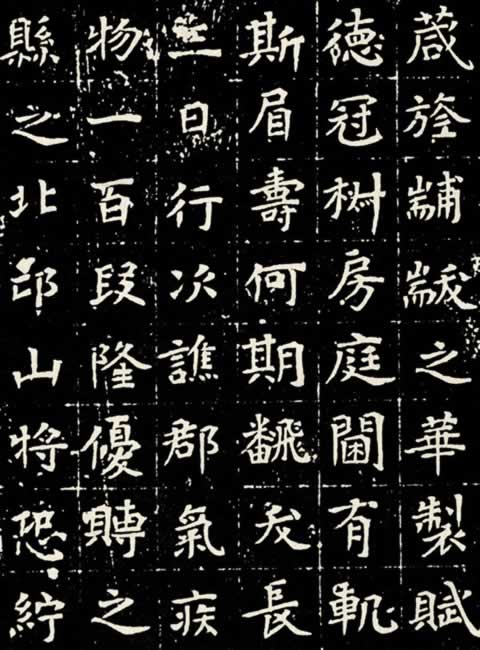 旌黼黻之華製賦
德冠椒房庭闈有軌
斯眉壽何期飜夭長
二日行次譙郡氣疾
物一百段隆優聘之
縣之北邙山將恐紵